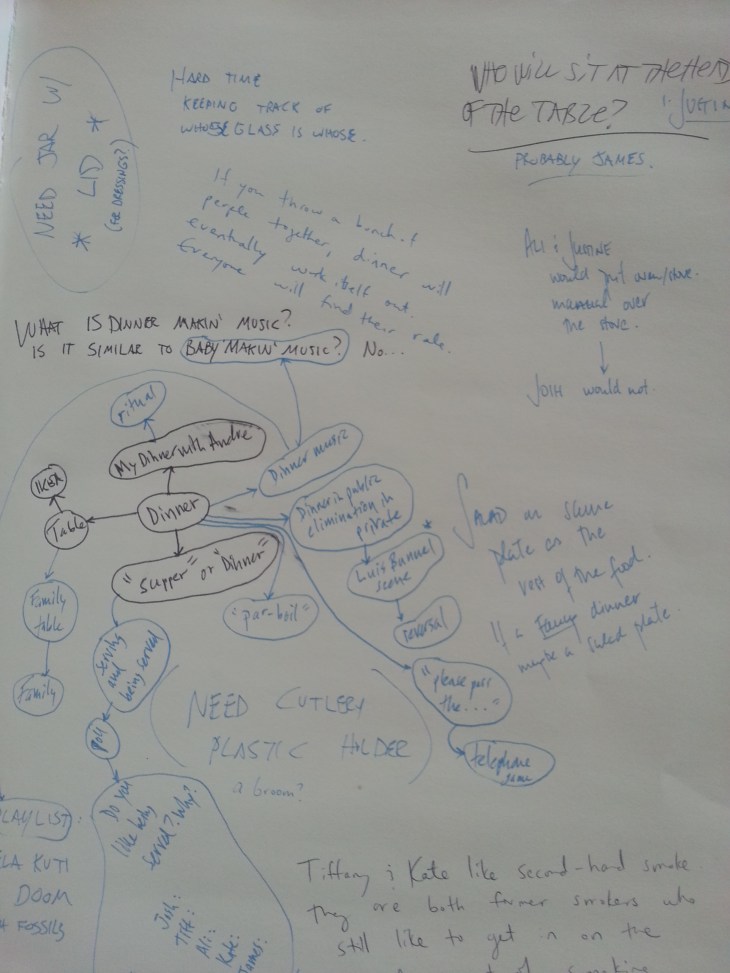 NEED JAR W/
* LID *
(FOR DRESSINGS?)
HARD TIME
KEEPING TRACK OF
WHOSE GLASS IS WHOSE.
WHO WILL SIT AT THE HEAD
OF THE TABLE?
PROBABLY JAMES.
If you throw a bunch of
people together, dinner will
eventually work itself out.
Everyone will find their role.
would just
over
the stove.
JOSH would not.
WHAT IS DINNER MAKIN' MUSIC?
IS IT SIMILAR TO BABY MAKIN' MUSIC? NO...
ritual
My Dinner with Andre
Dinner music
IKEA
Table
Dinner
Dinner in public
elimination in
private
"Supper" or "Dinner"
Luis Bunuel *
scene
reversal
"par-boil"
Family
table
Family
serving
and
being served
poll
"please pass
the..."
telephone
game
SALAD on same
plate as the
rest of the food.
If a Fancy dinner
maybe a salad plate.
NEED CUTLERY
PLASTIC HOLDER
a broom?
Do you
like being
served? Why?
Josh:
Tiff:
Ali:
Kate:
James:
PLAYLIST:
LA KUTI
DOOM
FOSSILS
Tiffany & Kate like second-hand smoke.
They are both former smokers who
still like to get in on the